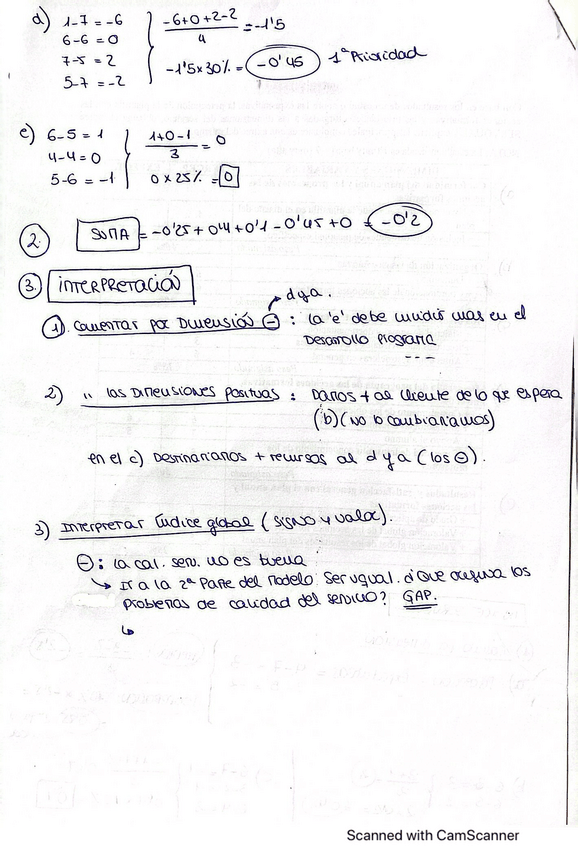 d) 1-7 = -6
6-6 = 0
7-5 = 2
5-7 = -2
-6+0+2-2
4
= -1'5
-1'5 x 30% = -0'45 1ª Prioridad
e) 6-5 = 1
4-4 = 0
5-6 = -1
1+0-1
3
= 0
0 x 25% = 0
2. SUMA = -0'25 + 0'4 + 0'1 - 0'45 + 0 = -0'2
3. INTERPRETACIÓN
d y a.
1). Comentar por Dimensión ⊖ : la 'e' debe incidir mas en el
Desarrollo programa
---
2) " las Dimensiones positivas : Damos + al cliente de lo que espera
(b) (no lo cambiaríamos)
en el c) Destinaríamos + recursos al d y a (los ⊖).
3) Interpretar Índice global (signo y valor).
⊖: la cal. serv. no es buena
↳ Ir a la 2ª Parte del modelo. Servqual. ¿Que origina los
problemas de calidad del servicio? GAP.
↳
Scanned with CamScanner